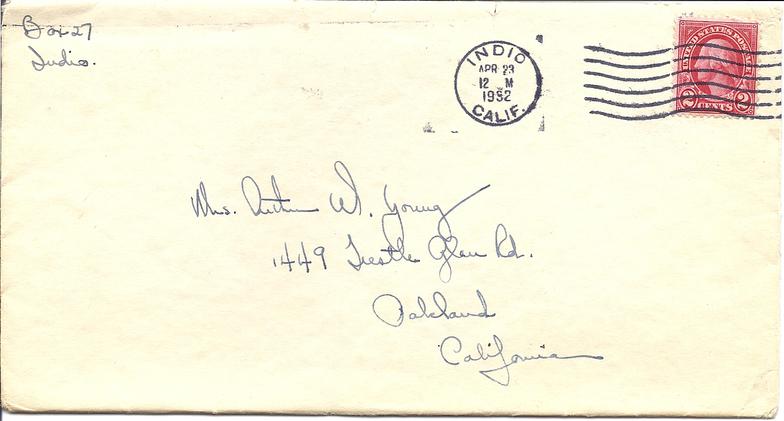 Box 27
Indio.
INDIO
APR 23
12 M
1932
CALIF.
UNITED STATES POSTAGE
2 CENTS 2
Mrs. Arthur W. Young
1449 Trestle Glen Rd.
Oakland
California